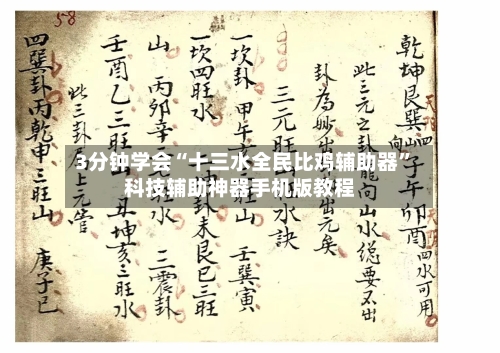 乾坤艮巽山子午卯酉向四水可用
此三元之卦龍向山水總要不出
卦為妙出卦出元矣
三元旺山旺水訣
一坎卦 甲午 壬巽寅
一坎四旺水 卦未艮巳三旺
山 丙卯辛 三震卦
壬酉乙三旺山 丑坤亥三旺水
此三卦 上元管
四巽卦丙乾申三旺山 庚子巳
58
3分钟学会“十三水全民比鸡辅助器”
科技辅助神器手机版教程